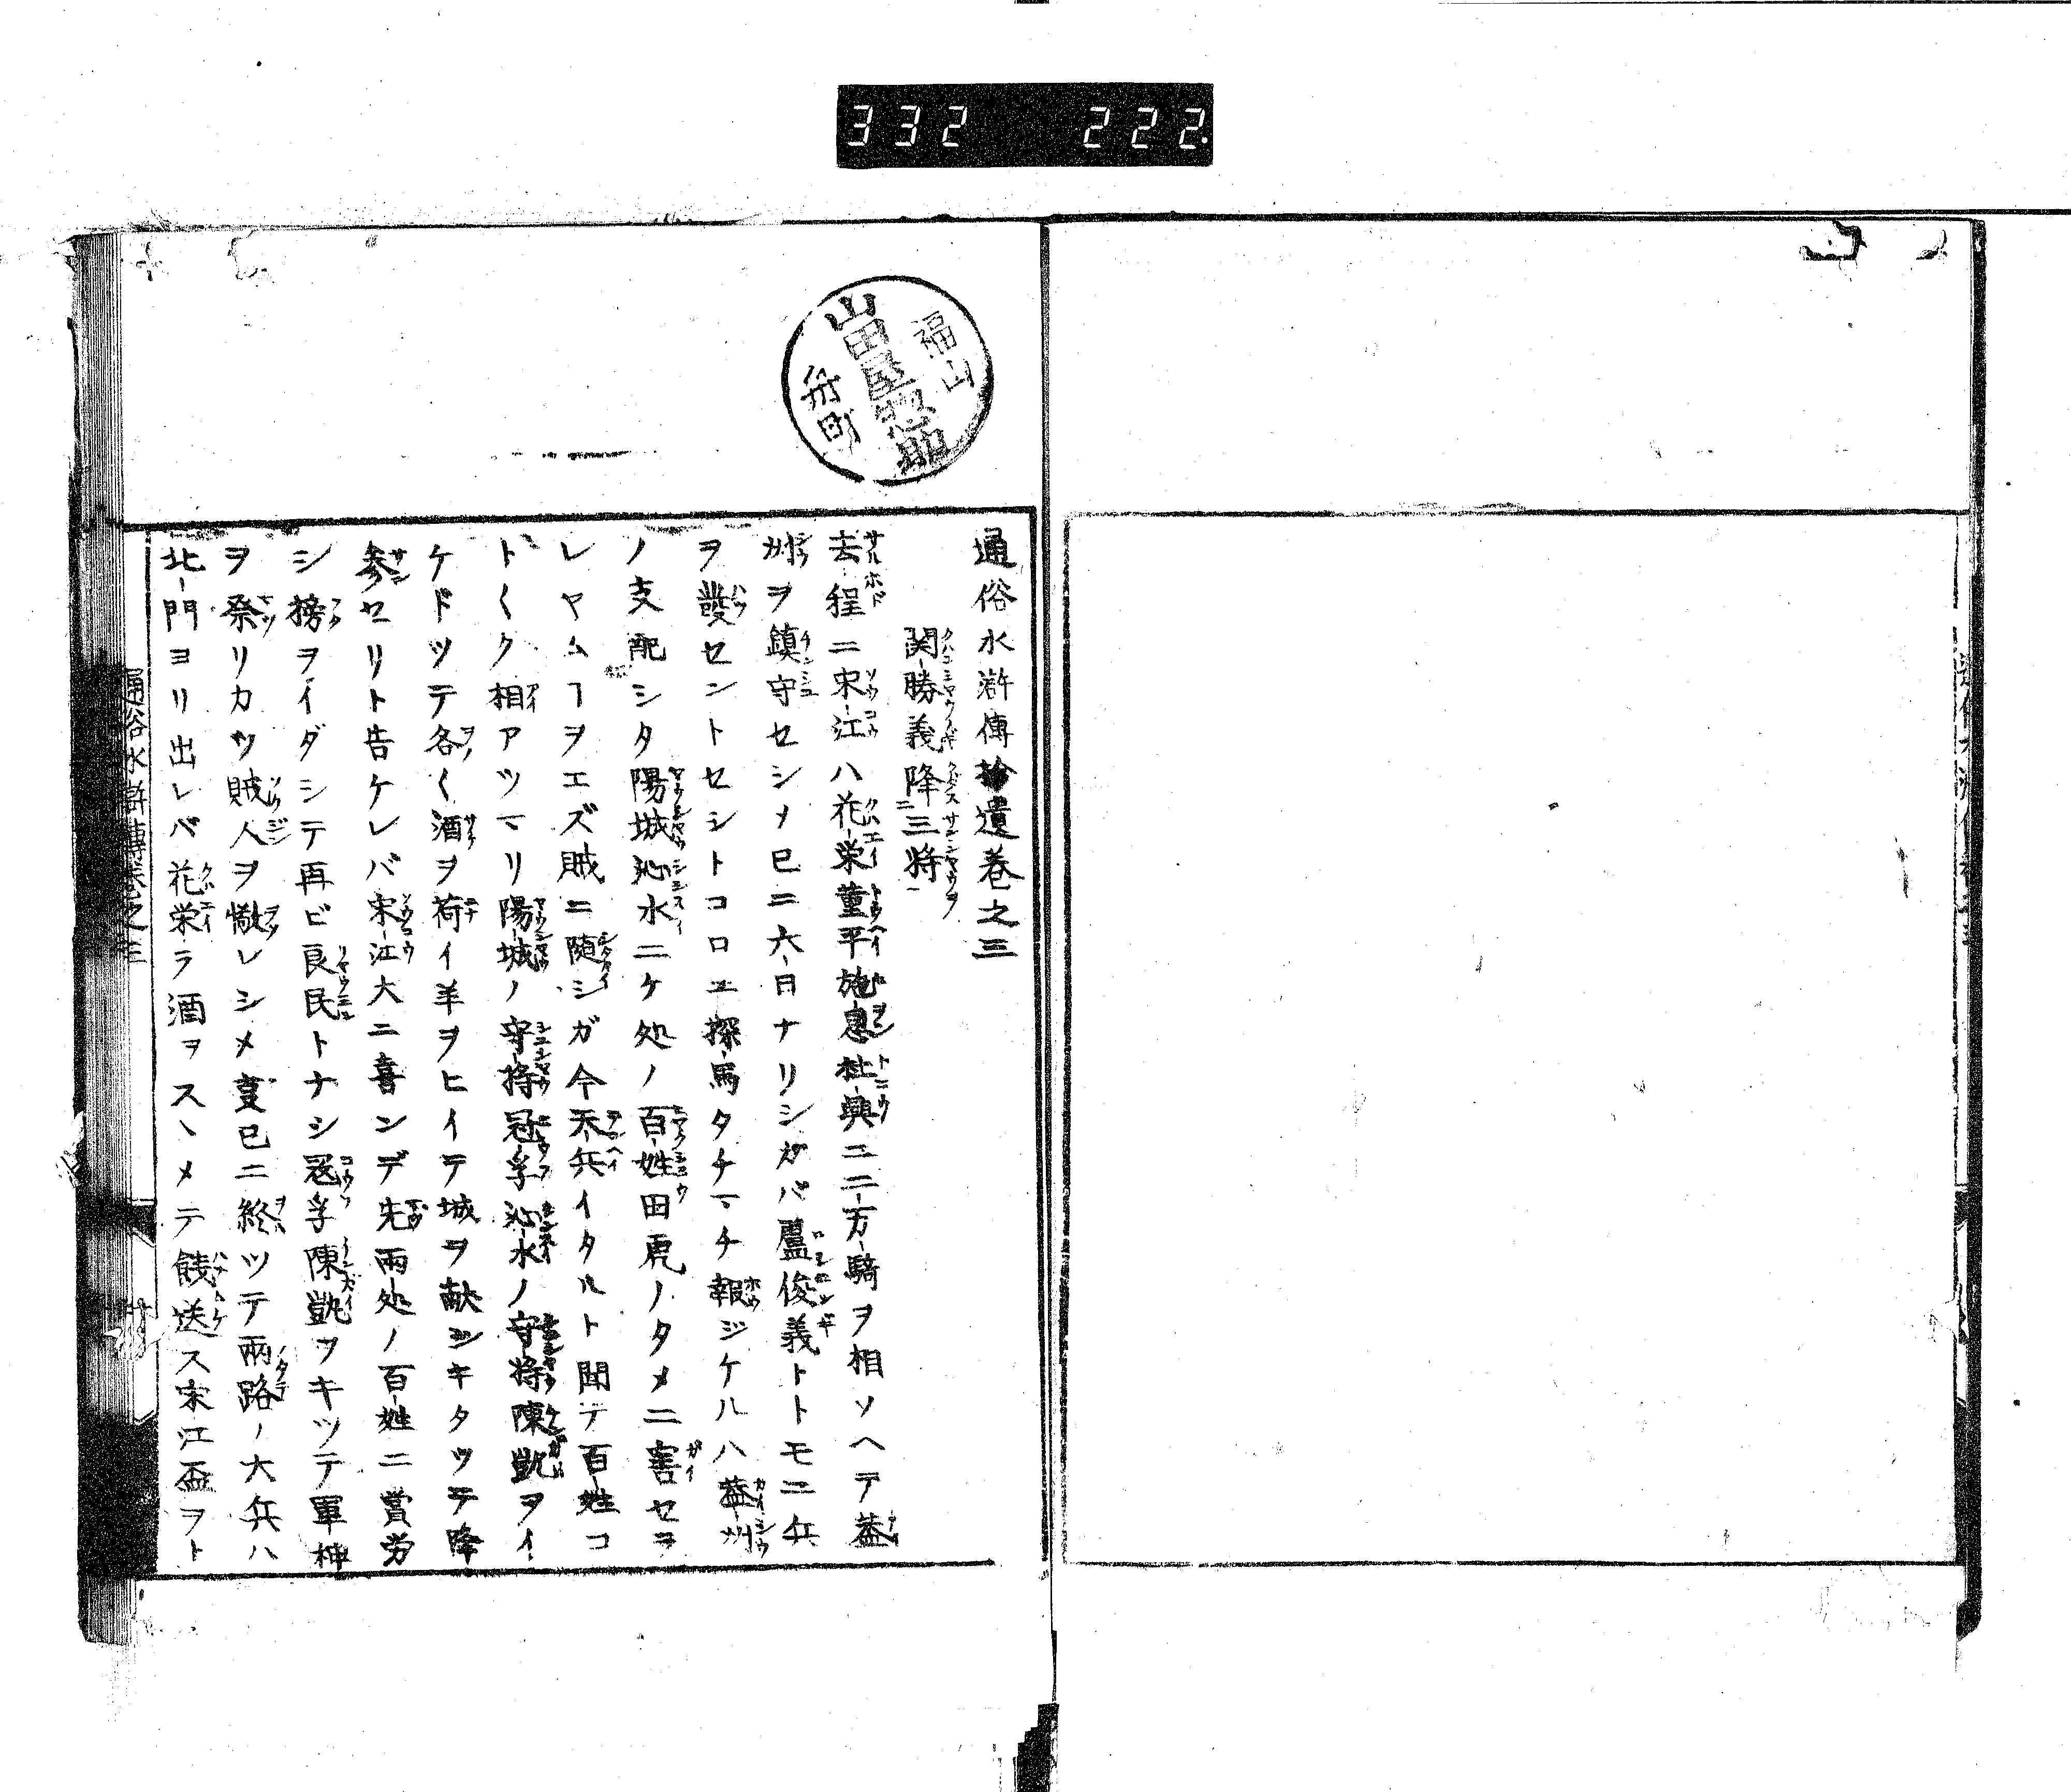 332 222
福山
山田屋
舟町
通俗水滸傳拾遺巻之三
関勝義降三将
去程ニ宋江ハ花栄董平施恩杜興ニ二万騎ヲ相ソヘテ蓋
州ヲ鎮守セシメ已ニ六日ナリシカバ盧俊義トトモニ兵
ヲ發セントセシトコロエ探馬タチマチ報ジケルハ蓋州
ノ支配シタ陽城沁水ニケ処ノ百姓田虎ノタメニ害セヲ
レヤムヿヲエズ賊ニ随シガ今天兵イタルト聞テ百姓コ
ト〱ク相アツマリ陽城ノ守将冦孚沁水ノ守将陳凱ヲイ
ケドツテ各〱酒ヲ荷イ羊ヲヒイテ城ヲ献シキタッテ降
参セリト告ケレバ宋江大ニ喜ンデ先両処ノ百姓ニ賞労
シ榜ヲイダシテ再ビ良民トナシ冦孚陳凱ヲキツテ軍神
ヲ祭リカツ賊人ヲ懺レシメ亶已ニ終ツテ兩路ノ大兵ハ
北門ヨリ出レバ花栄ラ酒ヲスヽメテ餞送ス宋江盃ヲト
通俗水滸傳巻之三